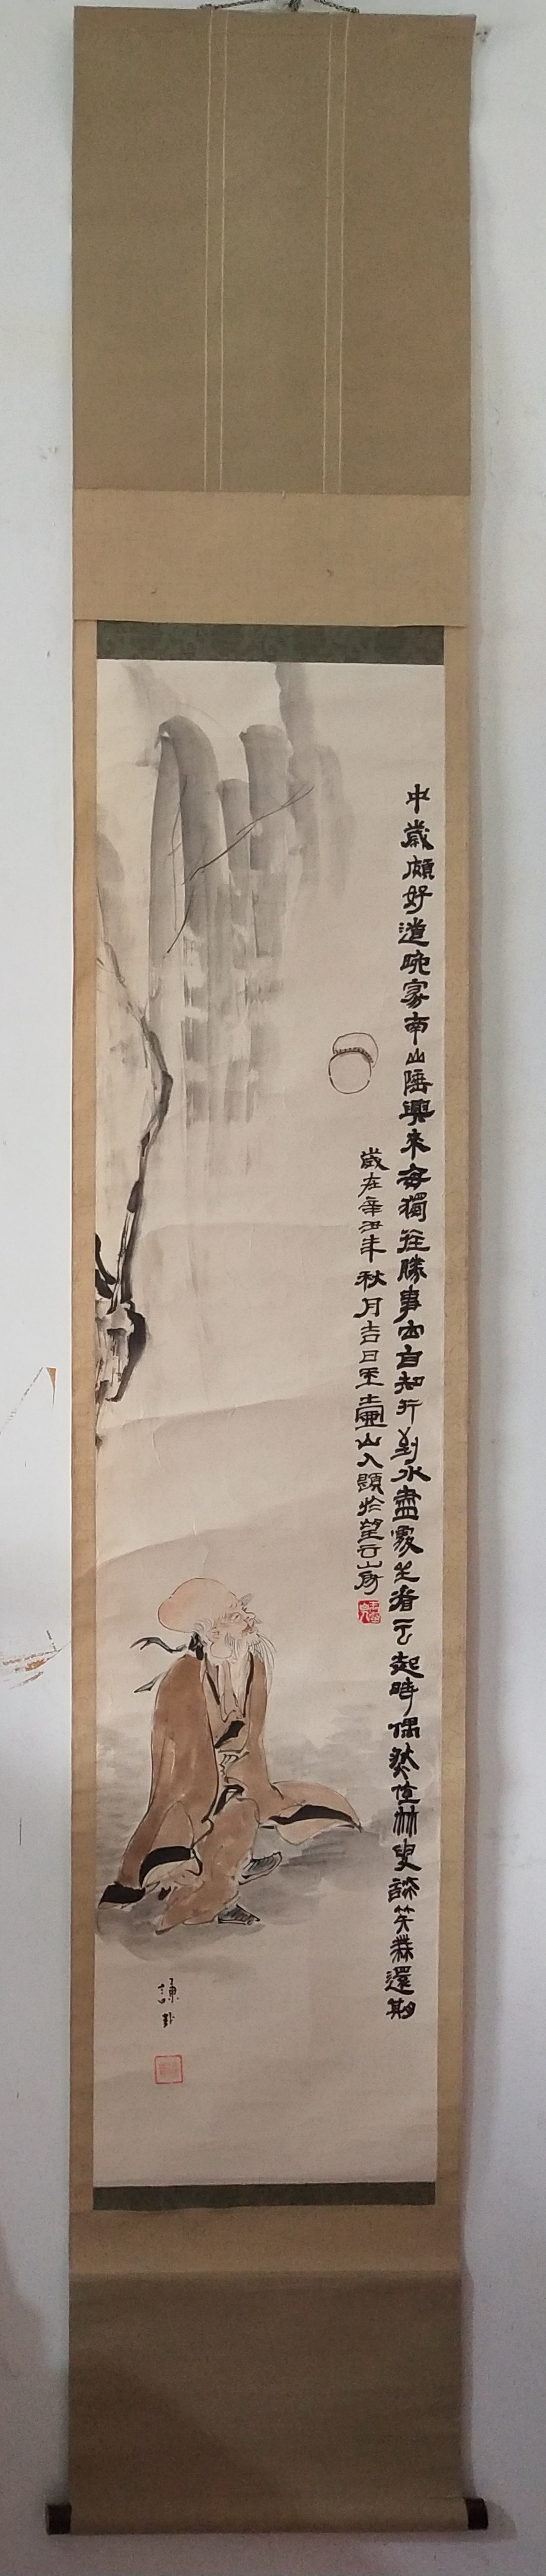 中歲頗好道晚家南山陲興來每獨往勝事空自知行到水盡處坐看雲起時偶然值林叟談笑無還期
歲在辛丑年秋月吉日王壺山人題於望云山房
謙